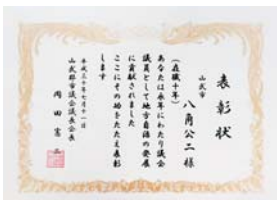 表彰状
山武市
八角公二 様
(在職十年)
あなたは永年にわたり議会
議員として地方自治の発展
に貢献されました
ここにその功をたたえ表彰
します
平成三十年七月十一日
山武郡市議会議長会会長